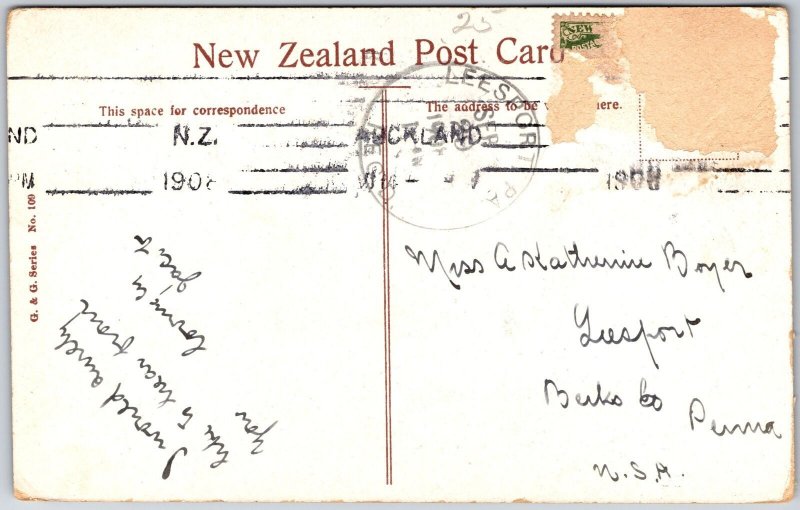 25
New Zealand Post Card
NEW
This space for correspondence
The address to be here.
LEESPORT PA.
SEP
REC'D
N.Z. AUCKLAND
PM 1908 1908
G. & G. Series No. 109
I would surely
like to hear from
you
Miss A Katherine Boyer
Leesport
Berks Co Penna
U.S.A.